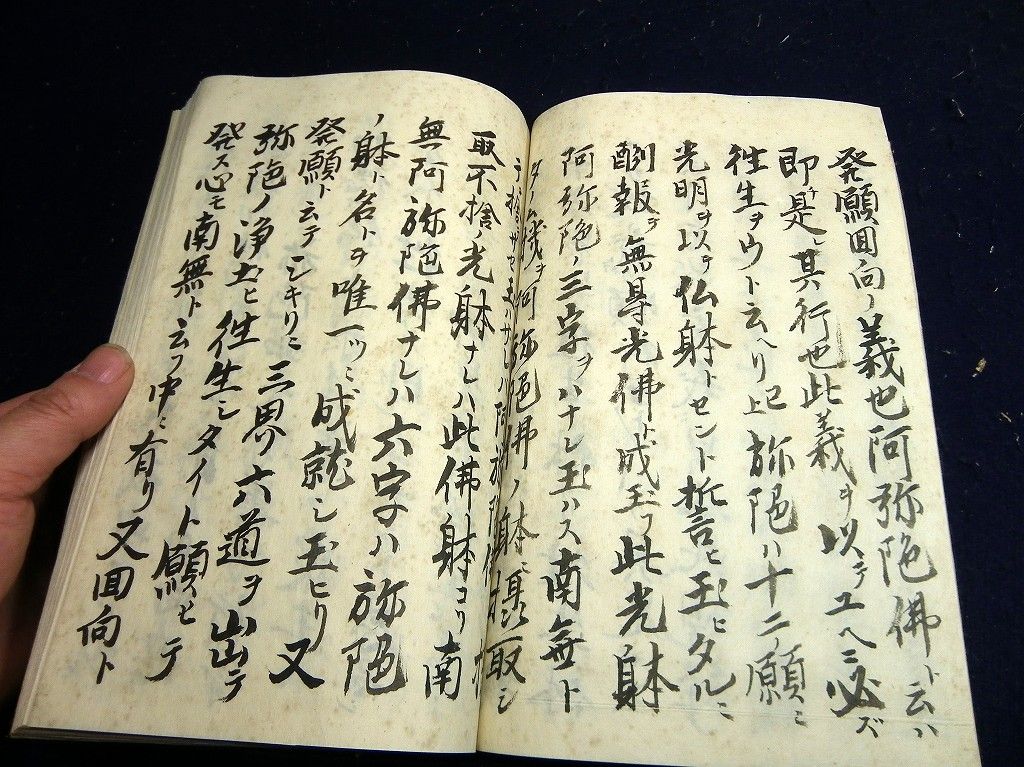 発願回向ノ義也阿弥陀佛ト云ハ
即是其行也此義ヲ以テユヘニ必ズ
往生ヲウト云ヘリ已上弥陀ハ十二ノ願ニ
光明ヲ以テ仏躰トセント誓ヒ玉ヒタルニ
酬報テ無导光佛ト成玉フ此光躰
阿弥陀ノ三字ヲハナレ玉ハス南無ト
タノム機ヲ阿弥陀佛ノ躰ニ摂取シ
取不捨光躰ナレハ此佛躰ヨリ南
無阿弥陀佛ナレハ六字ハ弥陀
ノ躰ト名トヲ唯一ツニ成就シ玉ヒリ又
発願ト云テシキリニ三界六道ヲ出テ
弥陀ノ浄土ヒ往生シタイト願ヒテ
発ス心モ南無ト云フ中ニ有リ又回向ト